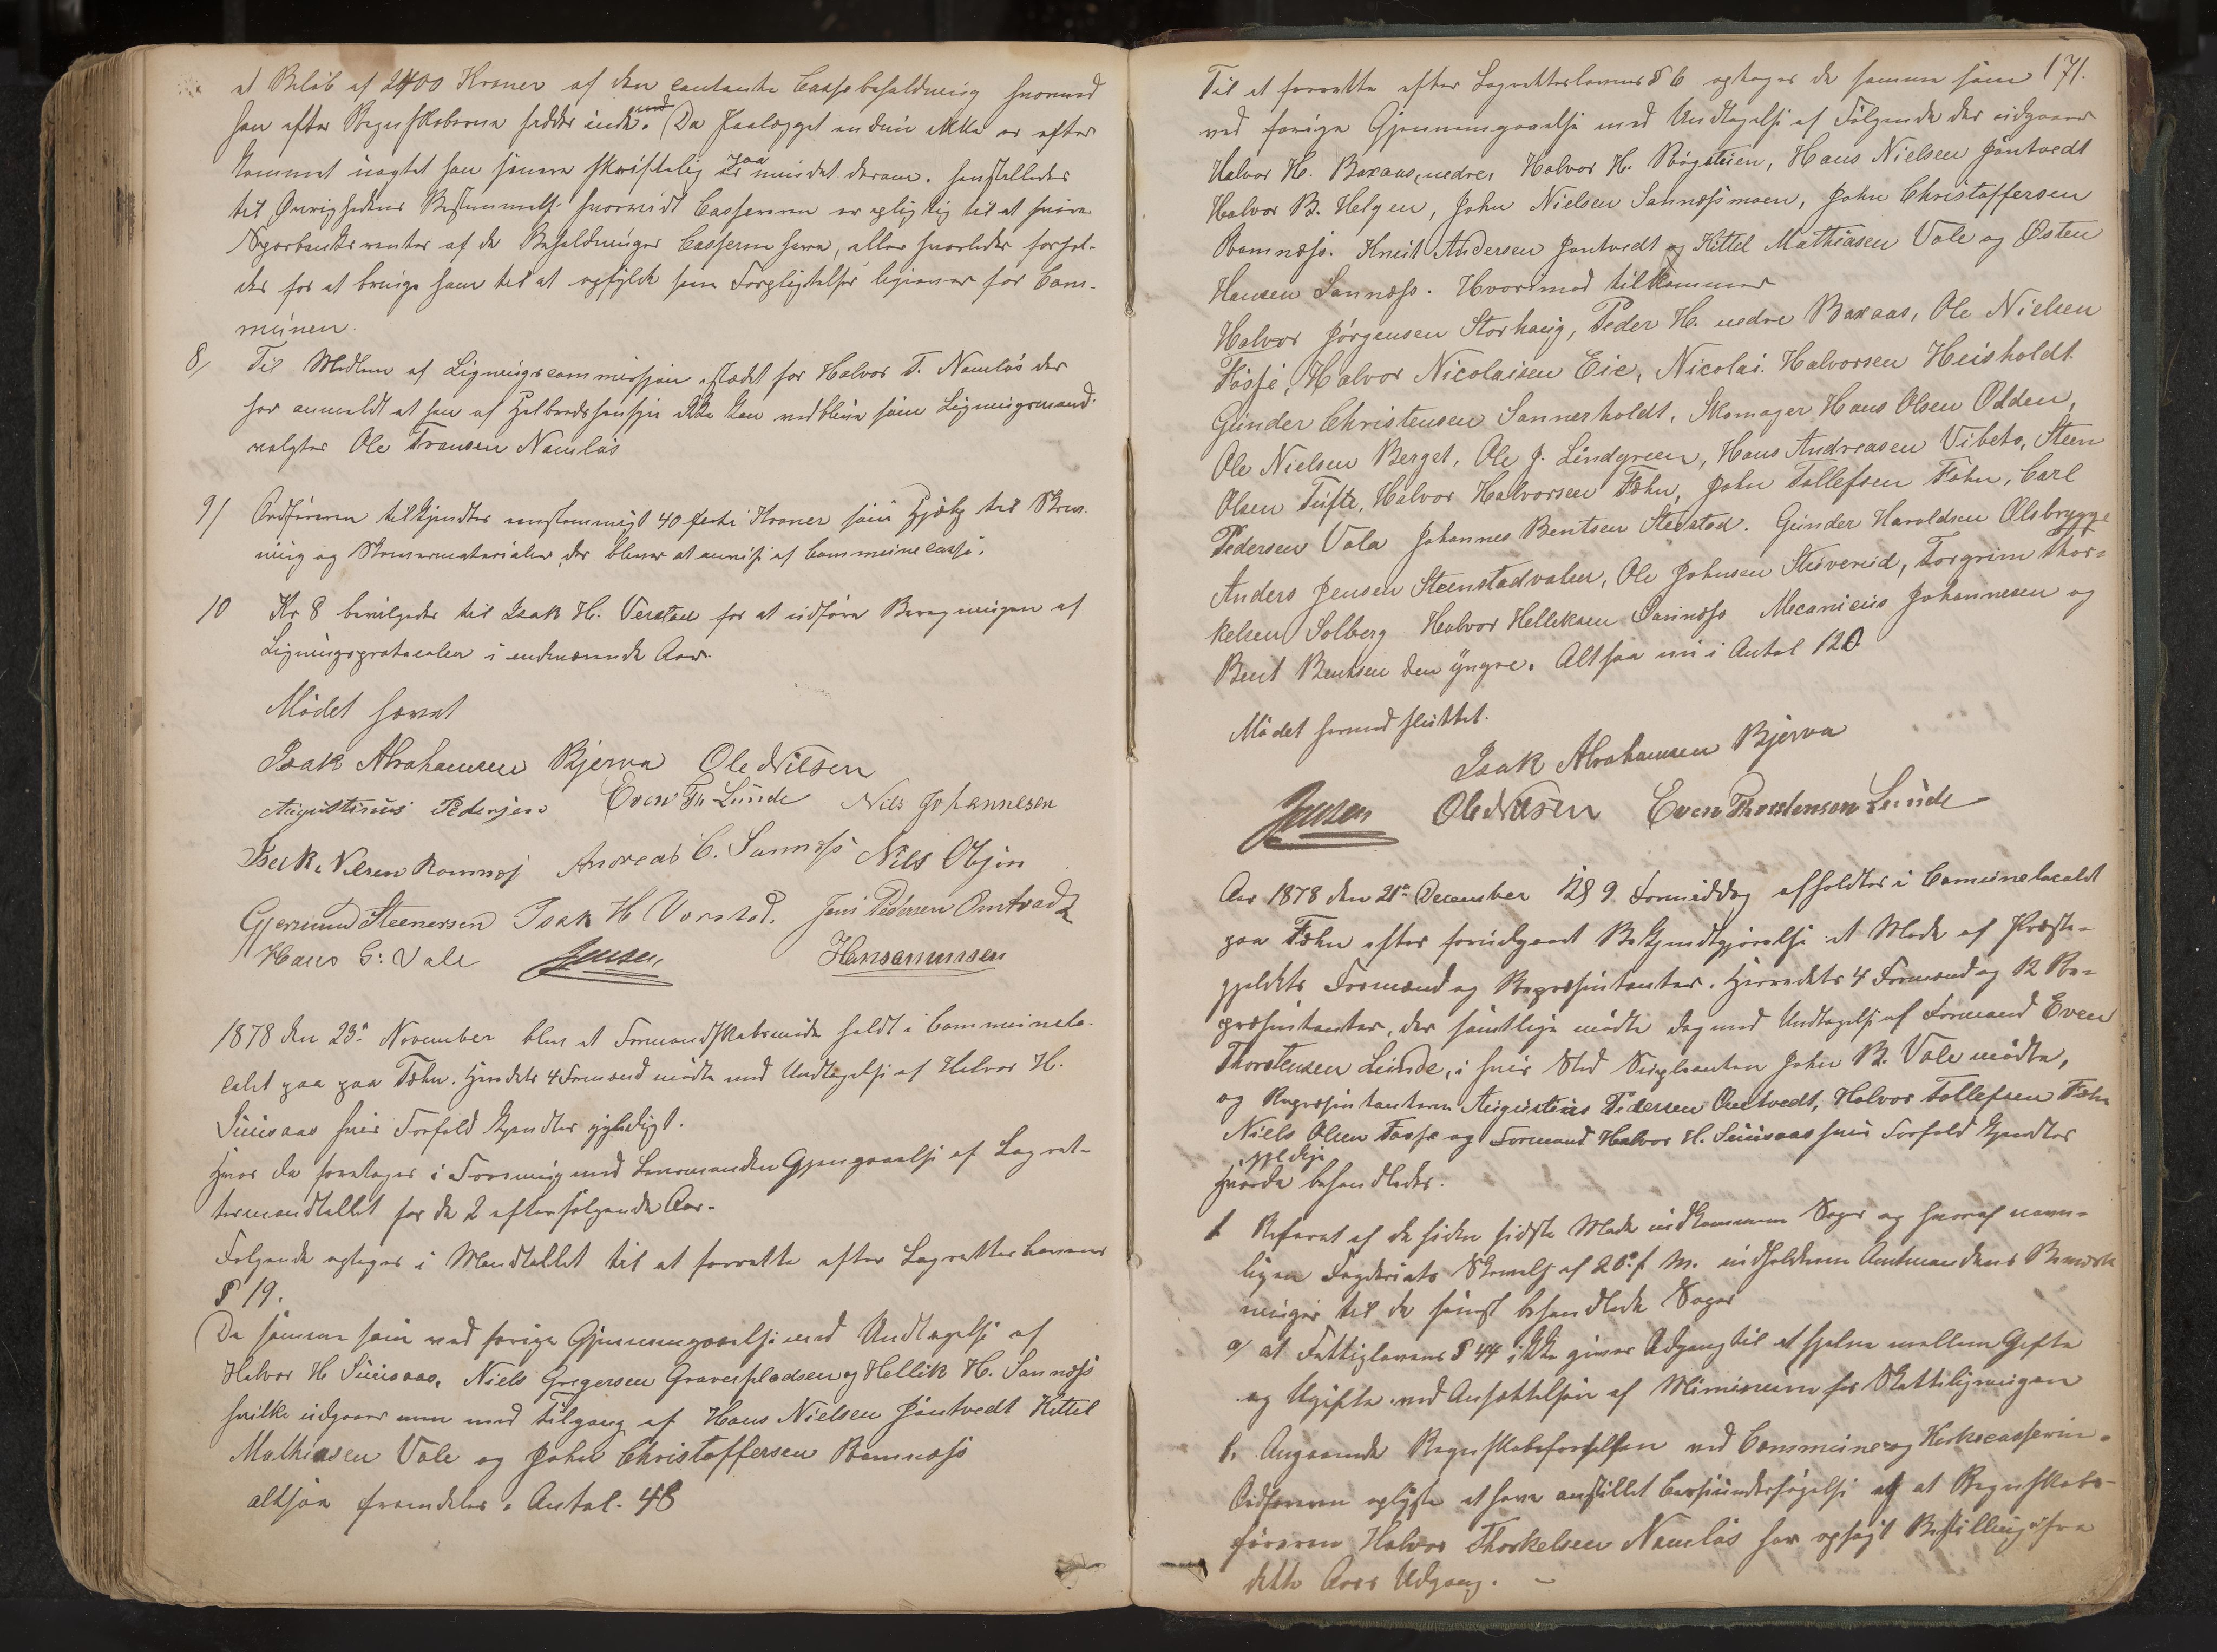 et Beløb af 2400 Kroner af den contante Cassebeholdning hvormed
han efter Regnskaberne sidder inde. Da Paalægget endnu ikke er efter
kommet uagtet han senere skriftelig er mindet derom. henstilledes
til Øvrighedens Bestemmelse hvorvidt Casseren er pligtig til at svare
Sparbanksrenter af de Beholdninger Casserne have, eller hvorledes forhol-
des for at bringe ham til at opfylde sine Forpligtelser ligeover for Com-
munen.
8/ Til Medlem af Ligningscommissjon istedet for Halvor T. Namløs der
har anmeldt at han af Helbredshensyn ikke kan vedblive som Ligningsmand.
valgtes Ole Fransen Namløs
9/ Ordføreren tilkjendtes enstemmigt 40 førti Kroner som Hjælp til Skriv-
ning og Skrivermaterialier, der bliver at anvise af Communecassen.
10 Kr 8 bevilgedes til Isak H. Verstad for at udføre Beregningen af
Ligningsprotocolen i indeværende Aar.
Mødet hævet
Isak Abrahamsen Bjerva Ole Nilsen
Augustinus Pedersen Even Th Lunde Nils Johannesen
Isak Nilsen Romnes Andreas C. Sannæss Nils Olsen
Gjermund Steenersen Isak H Verstad. Jens Pedersen Omtvedt
Hans G: Vale Jensen Hans Amunsen
1878 den 23de November blev et Formandskabsmøde holdt i Communelo-
calet paa paa Fæhn. Herredets 4 Formænd mødte med Undtagelse af Halvor H.
Siiusaas hvis Forfald kjendtes gyldigt.
Hvor da foretages i Forening med Lensmanden Gjengaaelse af Lagret-
temandtallet for de 2 efterfølgende Aar.
Følgende optages i Mandtallet til at forrette efter Lagretteslovens
§ 19.
De samme som ved forrige Gjennemgaaelse med Undtagelse af
Halvor H Siiusaas, Niels Gregersen Graverpladsen og Hellik H. Sannæss
hvilke udgaar men med Tilgang af Hans Nielsen Jøntvedt Kittel
Mathiasen Vale og John Christoffersen Romnæss
altsaa fremdeles i Antal. 48
171.
Til at forrette efter Lagretteslovens § 6 optages de samme som
ved forrige Gjennemgaaelse med Undtagelse af Følgende der udgaar
Halvor H. Boxaas, nedre, Halvor H. Røgsteien, Hans Nielsen Jøntvedt
Halvor B. Helgen, John Nielsen Sannæssmoen, John Christoffersen
Romnæss. Knut Andersen Jontvedt og Kittel Mathiasen Vale og Østen
Hansen Sannæss. Hvorimod tilkommer
Halvor Jørgensen Storhaug, Peder H. nedre Boxaas, Ole Nielsen
Fosse, Halvor Nicolaisen Eie, Nicolai Halvorsen Heisholdt.
Gunder Christensen Sannerholdt, Skomager Hans Olsen Odden,
Ole Nielsen Berget, Ole J. Lindgreen, Hans Andreasen Vibeto, Steen
Olsen Tufte, Halvor Halvorsen Fæhn, John Tollefsen Fæhn, Carl
Pedersen Vala Johannes Bentsen Stenstad. Gunder Haroldsen Olsbrygge
Anders Jensen Steenstadvalen, Ole Johnsen Stuverud, Torgrim Thor-
kelsen Solberg Halvor Helleksen Sannæss Mecanicus Johannesen og
Bent Bentsen den yngre. Altsaa nu i Antal 120
Mødet hermed sluttet.
Isak Abrahamsen Bjerva
Jensen Ole Nilsen Even Thorstensen Lunde
Aar 1878 den 21de December Kl 9 Formiddag afholdtes i Communelocalet
paa Fæhn efter forudgaaet Bekjendtgjørelse et Møde af Præste-
gjeldets Formænd og Repræsentanter. Herredets 4 Formænd og 12 Re-
præsentanter, der samtlige mødte dog med Undtagelse af Formand Even
Thorstensen Lunde, i hvis Sted Supleanten John R. Vale mødte,
og Repræsentanterne Augustinus Pedersen Omtvedt, Halvor Tollefsen Fæhn
Niels Olsen Fosse og Formand Halvor H. Siiusaas hvis Forfald kjendtes
gyldige
Hvorda behandledes.
1 Referat af de siden sidste Møde indkommne Sager og hvoraf navn-
ligen Fogderiets Skrivelse af 20de f. M. indholdende Amtmandens Bemærk
ninger til de sidst behandlede Sager
a/ at Fattiglovens § 44 ikke giver Adgang til at skjelne mellem Gifte
og Ugifte ved Ansættelsen af Minimum for Skatteligningen
b. Angaaende Regnskabsforholdene ved Commune- og Kirkecasserne.
Ordføreren oplyste at have anstillet Casseundersøgelse og at Regnskabs-
føreren Halvor Thorkelsen Namløs har opsagt Bestillingen fra
dette Aars Udgang. –